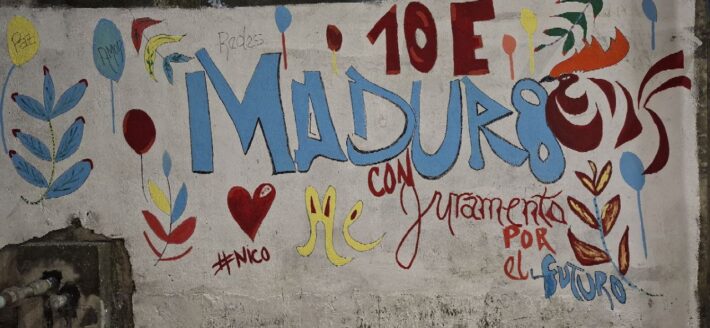 Paz
Redes
10 E
MADURO
CON
Juramento
Me
#NICO
POR
el FUTURO